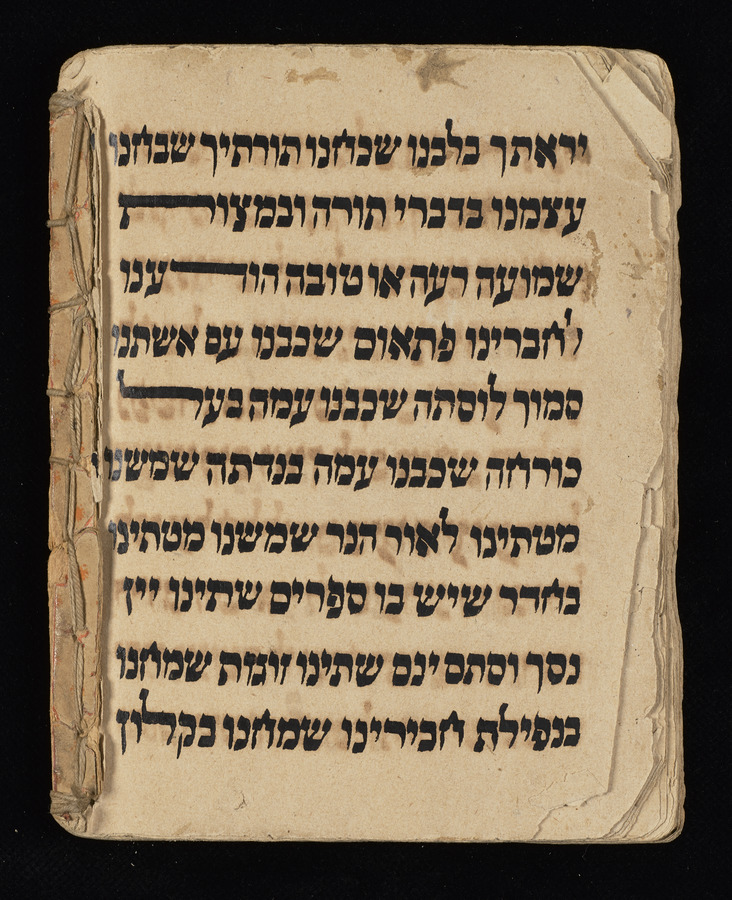 יראתך בלבנו שכחנו תורתיך שבחנו
עצמנו בדברי תורה ובמצות
שמועה רעה או טובה הודענו
לחברינו פתאום שכבנו עם אשתנו
סמוך לוסתה שכבנו עמה בעל
כורחה שכבנו עמה בנדתה שמשנו
מטתינו לאור הנר שמשנו מטתינו
בחדר שיש בו ספרים שתינו יין
נסך וסתם ינם שתינו זוגות שמחנו
בנפילת חבירינו שמחנו בקלון